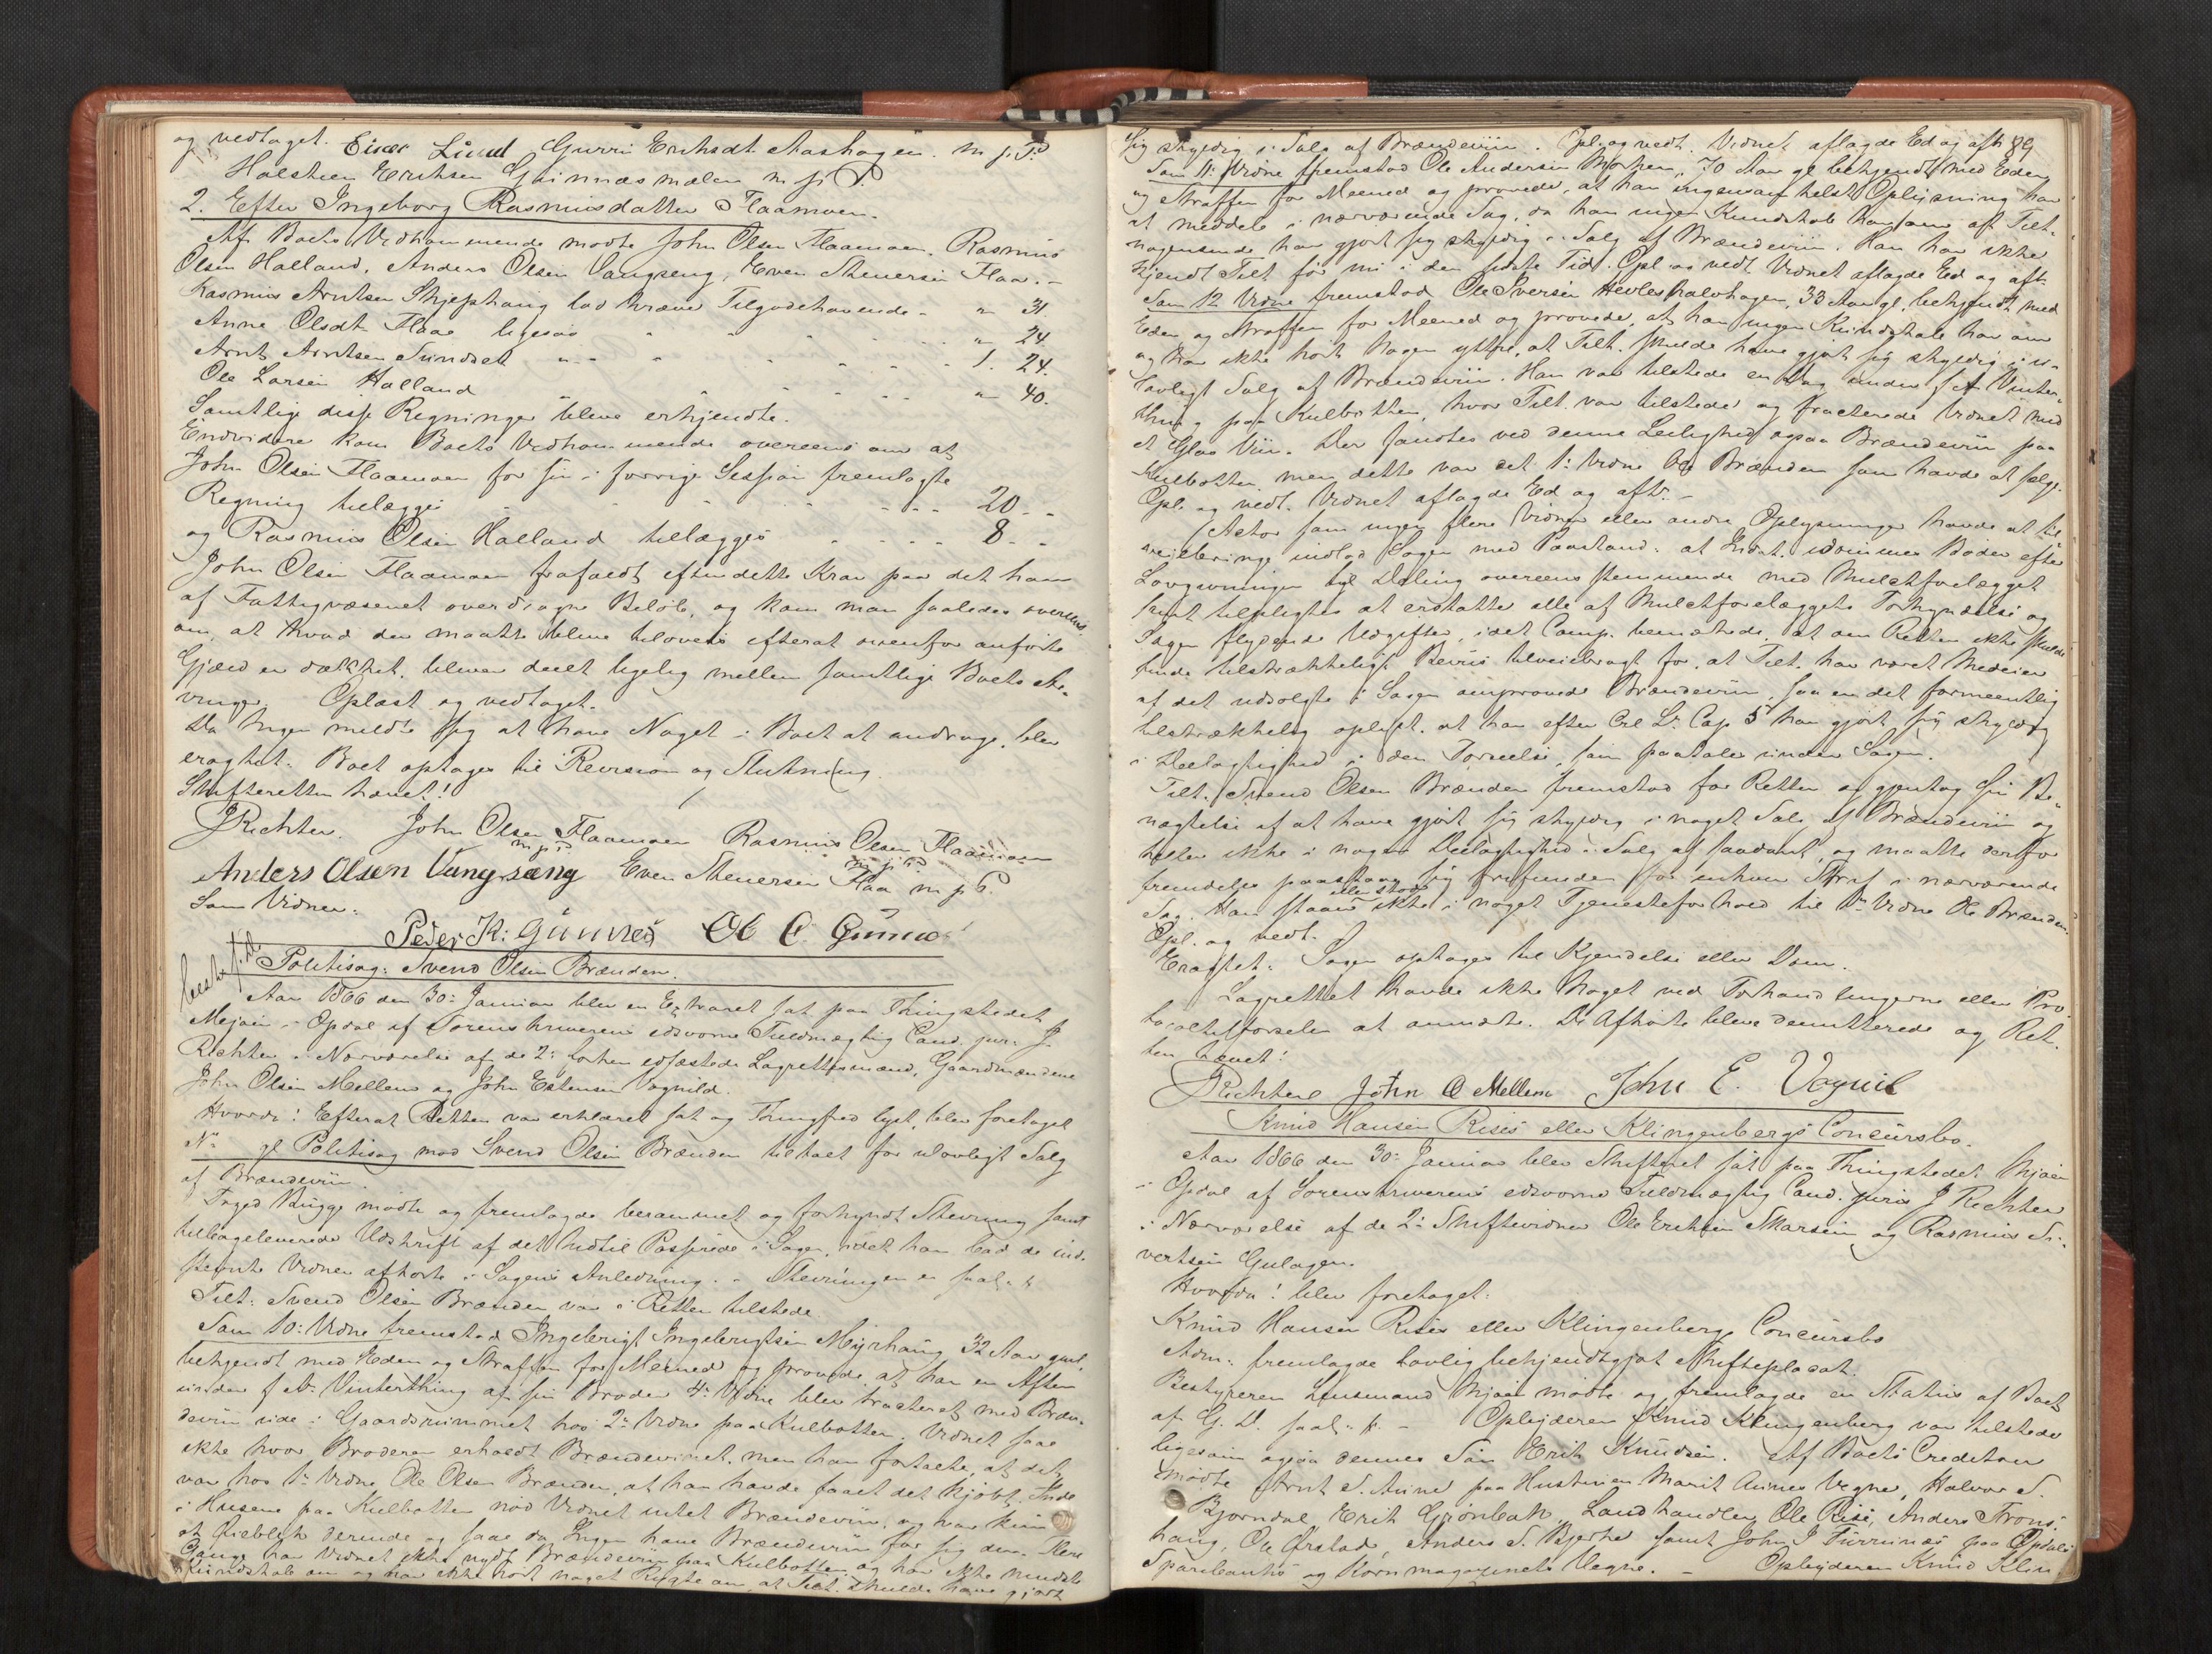 og vedtaget. Einar Lund Gurri Erichsdt Aashagen. m.p.P.
Halsteen Erichsen Grinnæsmælen m.p.P.
2. Efter Ingeborg Rasmusdatter Flaamoen.
Af Boets Vedkommende mødte John Olsen Flaamoen, Rasmus
Olsen Halland, Anders Olsen Vangseng, Even Steversen Flaa. -
Rasmus Arntsen Skjephaug lod kræve Tilgodehavende - " 31.
Anne Olsdt Flaa ligesaa " 24
Arnt Arntsen Sundset 1. 24.
Ole Larsen Halland " 40.
Samtlige disse Regninger bleve erkjendte.
Endvidere kom Boets Vedkommende overeens om at
John Olsen Flaamoen for sin i forrige Session fremlagte
Regning tillægges 20 - -
og Rasmus Olsen Halland tillægges 8 - -
John Olsen Flaamoen frafaldt efter dette Krav paa det ham
af Fattigvæsenet overdragne Beløb, og kom man saaledes overeens
om, at hvad der maatte blive tilovers efterat ovenfor anførte
Gjæld er dækket, bliver deelt ligelig mellem samtlige Boets Ar-
vinger. Oplæst og vedtaget.
Da Ingen meldte sig at have Noget i Boet at andrage, blev
eragtet: Boet optages til Revision og Slutning.
Skifteretten hævet!
JRichter. John Olsen Flaamoen Rasmus Olsen Flaamoen
m.p.P. m.p.P.
Anders Olsen Vangsæng Even Steversen Flaa m.p.P.
Som Vidner:
Peder K: Günnes Ole O. Günnes
Politisag: Svend Olsen Brænden.
Aar 1866 den 30: Januar blev en Extraret sat paa Thingstedet
Mjøen i Opdal af Sorenskriverens edsvorne Fuldmægtig Cand. jur. J.
Richter i Nærværelse af de 2: Lovkyn edfæstede Lagrettesmænd, Gaardmændene
John Olsen Mellem og John Estensen Vognild.
Hvorda! Efterat Retten var erklæret sat og Thingfred lyst, blev foretaget
N: gl Politisag mod Svend Olsen Brænden tiltalt for ulovligt Salg
af Brændeviin.
Foged Bugge mødte og fremlagde berammet og forkyndt Stevning samt
tilbageleverede Udskrift af det hidtil Passerede i Sagen, idet han bad de ind-
stevnte Vidner afhørte i Sagens Anledning. - Stevningen er saal: "
Tilt. Svend Olsen Brænden var i Retten tilstede
Som 10: Vidne fremstod Ingebrigt Ingebrigtsen Myrhaug 32 Aar gml.
bekjendt med Eden og Straffen for Meened og provede, at han en Aften
under f. A. Vinterthing af sin Broder 4: Vidne blev tracteret med Bræn-
deviin ude i Gaardsrummet hos 2: Vidne paa Kulbotten. Vidnet saae
ikke hvor Broderen erholdt Brændevinet, men han fortalte, at det
var hos 1: Vidne Ole Olsen Brænden, at han havde faaet det kjøbt. Inde
i Husene paa Kulbotten nød Vidnet intet Brændeviin, og var kun
et Øieblik derinde og saae da Ingen have Brændeviin for sig der. Flere
Gange har Vidnet ikke nydt Brændeviin paa Kulbotten og har ikke mindste
Kundskab om og har ikke hørt noget Rygte om, at Tilt. skulde have gjort
89
sig skyldig i Salg af Brændeviin. Opl. og vedt. Vidnet aflagde Ed og aftr.
Som 11: Vidne fremstod Ole Andersen Morken, 70 Aar gl bekjendt med Eden
og Straffen for Meened og provede, at han ingensomhelst Oplysning har
at meddele i nærværende Sag, da han ingen Kundskab har om at Tilt.
nogensinde har gjort sig skyldig i Salg af Brændeviin. Han har ikke
kjendt Tilt før nu i den sidste Tid. Opl. og vedt. Vidnet aflagde Ed og aftr.
Som 12 Vidne fremstod Ole Iversen Hevleshalvhagen, 33 Aar gl. bekjendt med
Eden og Straffen for Meened og provede, at han ingen Kundskab har om
og har ikke hørt Nogen yttre, at Tilt. skulde have gjort sig skyldig i u-
lovligt Salg af Brændeviin. Han var tilstede en Dag under f. A. Vinter-
thing paa Kulbotten, hvor Tilt. var tilstede og tracterede Vidnet med
et Glas Viin. Der fandtes ved denne Leilighed ogsaa Brændeviin paa
Kulbotten, men dette var det 1: Vidne Ole Brænden som havde at sælge.
Opl. og vedt. Vidnet aflagde Ed og aftr. -
Actor som ingen flere Vidner eller andre Oplysninger havde at til-
veiebringe indlod Sagen med Paastand: at Indst. idømmes Bøder efter
Lovgivningen til Deling overeensstemmende med Mulctforelægget
samt tilpligtes at erstatte alle af Mulctforelæggets Forkyndelse og
Sagen flydende Udgifter, idet Comp. bemærkede, at om Retten ikke skulde
finde tilstrækkeligt Beviis tilveiebragt for, at Tilt. har været Medeier
af det udsolgte i Sagen omprovede Brændeviin, saa er det formeentlig
tilstrækkelig oplyst, at han efter Crl L. Cap 5 har gjort sig skyldig
i Deelagtighed i den Forseelse, som paatales under Sagen.
Tilt. Svend Olsen Brænden fremstod for Retten og gjentog sin Be-
nægtelse af at have gjort sig skyldig i noget Salg af Brændeviin og
heller ikke i nogen Deelagtighed i Salg af saadant, og maatte derfor
fremdeles paastaae sig frifunden for enhver Straf i nærværende
Sag. Han staaer eller stod ikke i noget Tjenesteforhold til 1: Vidne Ole Brænden.
Opl. og vedt.
Eragtet: Sagen optages til Kjendelse eller Dom.
Lagrettet havde ikke Noget ved Forhandlingerne eller Pro-
tocoltilførselen at anmærke. De Afhørte bleve demitterede og Ret-
ten hævet!
JRichter John O Mellem John E. Vognil
Knud Hansen Rises eller Klingenbergs Concursbo.
Aar 1866 den 30: Januar blev Skifteret sat paa Thingstedet Mjøen
i Opdal af Sorenskriverens edsvorne Fuldmægtig Cand. juris J Richter
i Nærværelse af de 2: Skiftevidner Ole Erichsen Skarsem og Rasmus Si-
vertsen Gulagen.
Hvorda! blev foretaget:
Knud Hansen Rises eller Klingenbergs Concursbo
Adm: fremlagde lovlig bekjendtgjort Skifteplacat.
Bestyreren Lensmand Mjøen mødte og fremlagde en Status af Boet
af G. D. saal: " - Opbyderen Knud Klingenberg var tilstede
ligesom ogsaa dennes Søn Erik Knudsen. Af Boets Creditorer
mødte Arnt S. Aune paa Hustruen Marit Aunes Vegne, Halvor S.
Bjørndal, Erik Grønbak, Landhandler Ole Rise, Anders Trons-
haug, Ole Ørstad, Anders S. Bjerke samt John J Furrunæs paa Opdals
Sparebanks og Kornmagazinets Vegne. - Opbyderen Knud Klin